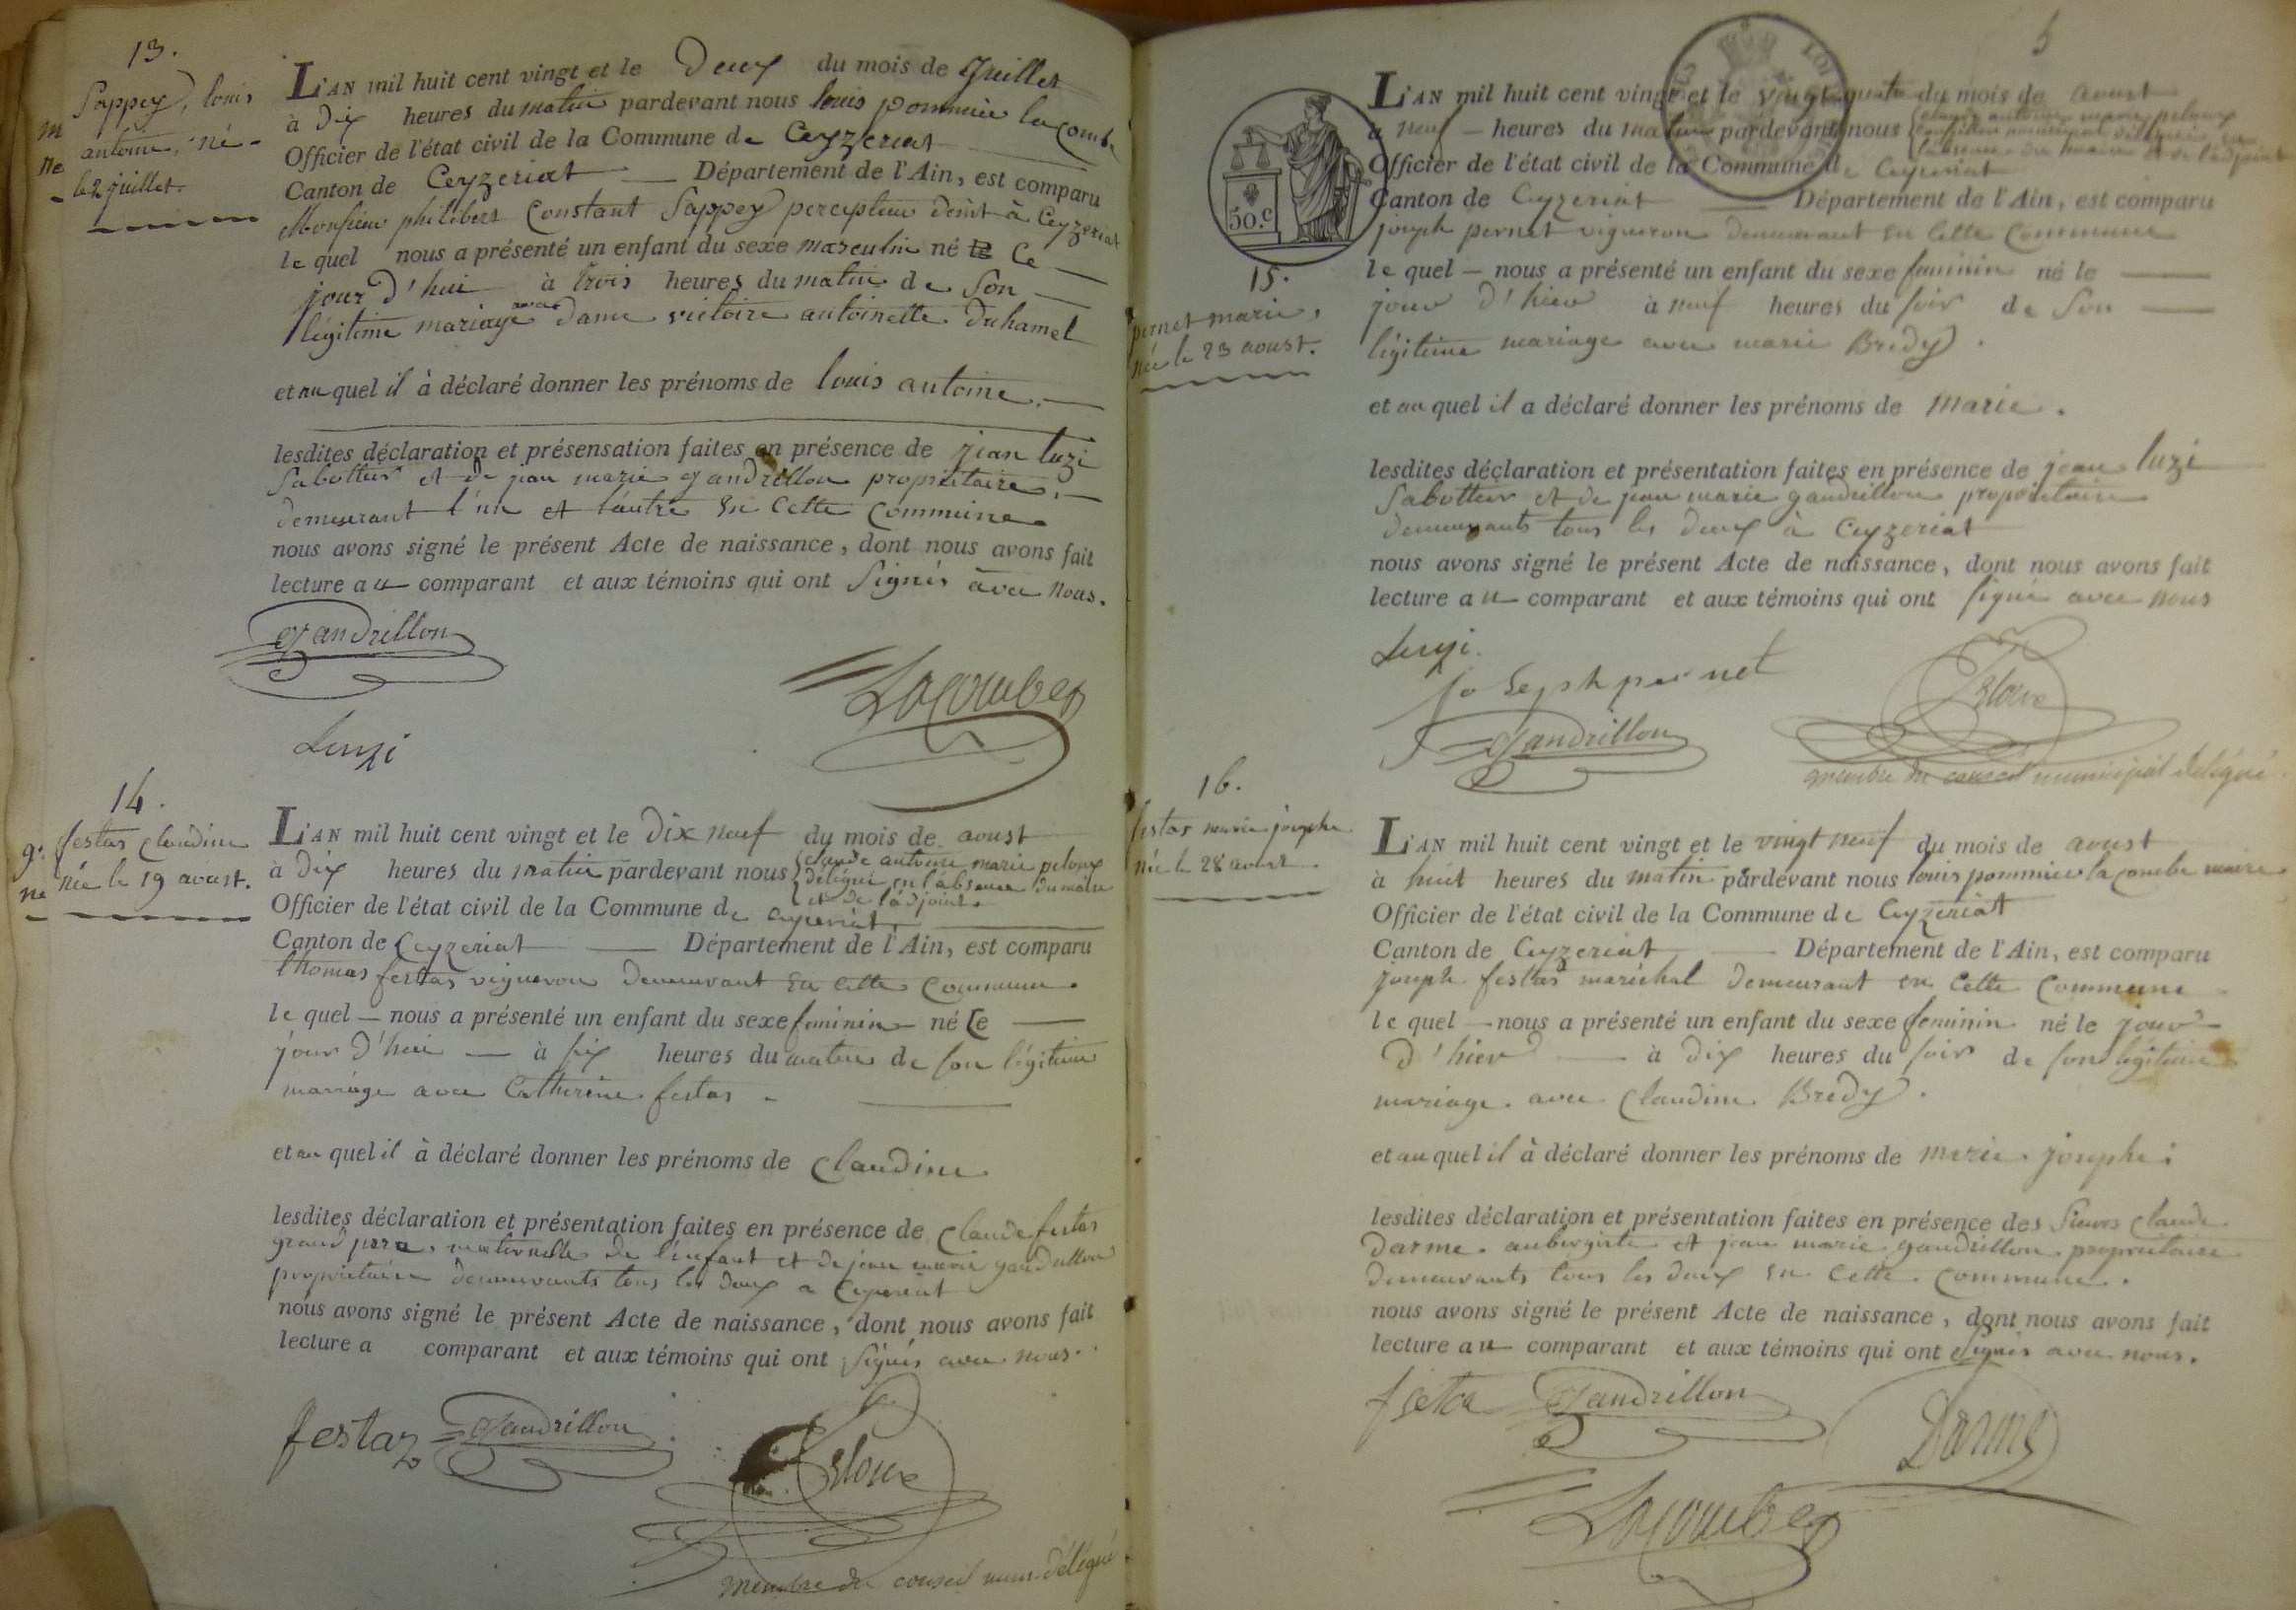 13.
Sappey, louis
antoine, né
le 2 juillet.
L'AN mil huit cent vingt et le Deux du mois de Juillet
à Dix heures du matin pardevant nous louis pommier lacombe
Officier de l'état civil de la Commune de Ceyzeriat
Canton de Ceyzeriat Département de l'Ain, est comparu
Monsieur philibert Constant Sappey percepteur demt à Ceyzeriat
le quel nous a présenté un enfant du sexe masculin né Ce
jour d'hui à trois heures du matin de Son
légitime mariage avec dame victoire antoinette Duhamel
et au quel il à déclaré donner les prénoms de louis antoine.
lesdites déclaration et présensation faites en présence de jean luzi
Sabotteur et de jean marie gandrillon propriétaire,
demeurant l'un et l'autre en cette commune
nous avons signé le présent Acte de naissance, dont nous avons fait
lecture au comparant et aux témoins qui ont Signés avec nous.
gandrillon
Lacombe
Luzi
14.
festas claudine
née le 19 avoust.
L'AN mil huit cent vingt et le Dix neuf du mois de avoust
à Dix heures du matin pardevant nous claude antoine marie peloux
délégué en l'absence du maire
et de l'adjoint.
Officier de l'état civil de la Commune de Ceyzeriat
Canton de Ceyzeriat Département de l'Ain, est comparu
thomas festas vigneron demeurant en cette commune.
le quel nous a présenté un enfant du sexe feminin né Ce
jour d'hui à six heures du matin de son légitime
mariage avec Catherine festas.
et au quel il à déclaré donner les prénoms de Claudine
lesdites déclaration et présentation faites en présence de Claude festas
grand pere maternelle de l'enfant et de jean marie gandrillon
propriétaire demeurants tous les deux a Ceyzeriat
nous avons signé le présent Acte de naissance, dont nous avons fait
lecture a comparant et aux témoins qui ont Signés avec nous.
festaz gandrillon
Peloux
membre du conseil mun. délégué
5
50.c
15.
pernet marie,
née le 23 aoust.
L'AN mil huit cent vingt et le vingt quatre du mois de avoust
à neuf heures du matin pardevant nous claude antoine marie peloux
conseiller municipal délégué en
l'absence du maire et de l'adjoint
Officier de l'état civil de la Commune de Ceyzeriat
Canton de Ceyzeriat Département de l'Ain, est comparu
joseph pernet vigneron demeurant en cette Commune
le quel nous a présenté un enfant du sexe feminin né le
jour d'hier à neuf heures du soir de Son
légitime mariage avec marie Bredy.
et au quel il a déclaré donner les prénoms de marie.
lesdites déclaration et présentation faites en présence de jean luzi
Sabotteur et de jean marie gandrillon propriétaire
demeurants tous les deux à Ceyzeriat
nous avons signé le présent Acte de naissance, dont nous avons fait
lecture au comparant et aux témoins qui ont signé avec nous
Luzi.
Joseph pernet
Peloux
gandrillon
membre du conseil municipal délégué
16.
festas marie josephe
née le 28 avoust.
L'AN mil huit cent vingt et le vingt neuf du mois de avoust
à huit heures du matin pardevant nous louis pommier lacombe maire
Officier de l'état civil de la Commune de Ceyzeriat
Canton de Ceyzeriat Département de l'Ain, est comparu
joseph festas maréchal demeurant en cette Commune
le quel nous a présenté un enfant du sexe feminin né le jour
d'hier à dix heures du soir de son légitime
mariage avec Claudine Bredy.
et au quel il à déclaré donner les prénoms de marie josephe.
lesdites déclaration et présentation faites en présence des Sieurs Claude
Darme aubergiste et jean marie gandrillon propriétaire
demeurants tous les deux en cette commune.
nous avons signé le présent Acte de naissance, dont nous avons fait
lecture au comparant et aux témoins qui ont Signés avec nous.
gandrillon
Darme
Lacombe